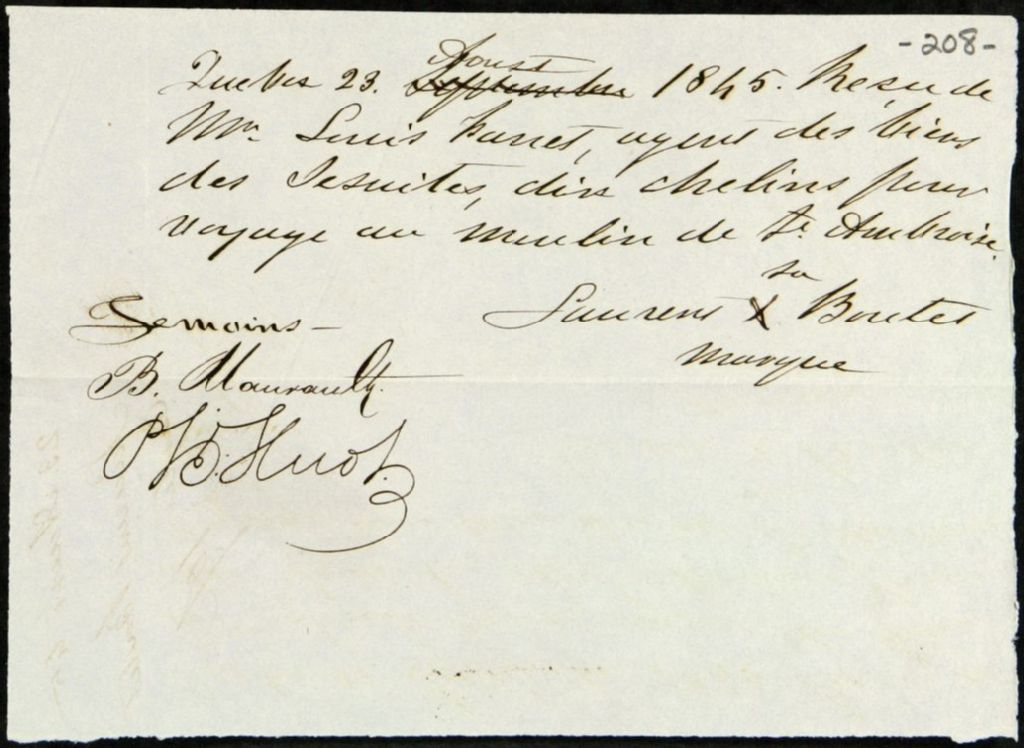 -208-
Aoust
Quebec 23. Septembre 1845. Reçu de
Mr. Louis Panet, agent des biens
des Jesuites, dix chelins pour
voyage au moulin de St. Ambroise.
sa
Temoins - Laurent X Boutet
marque
B. Maurault.
P. Huot.